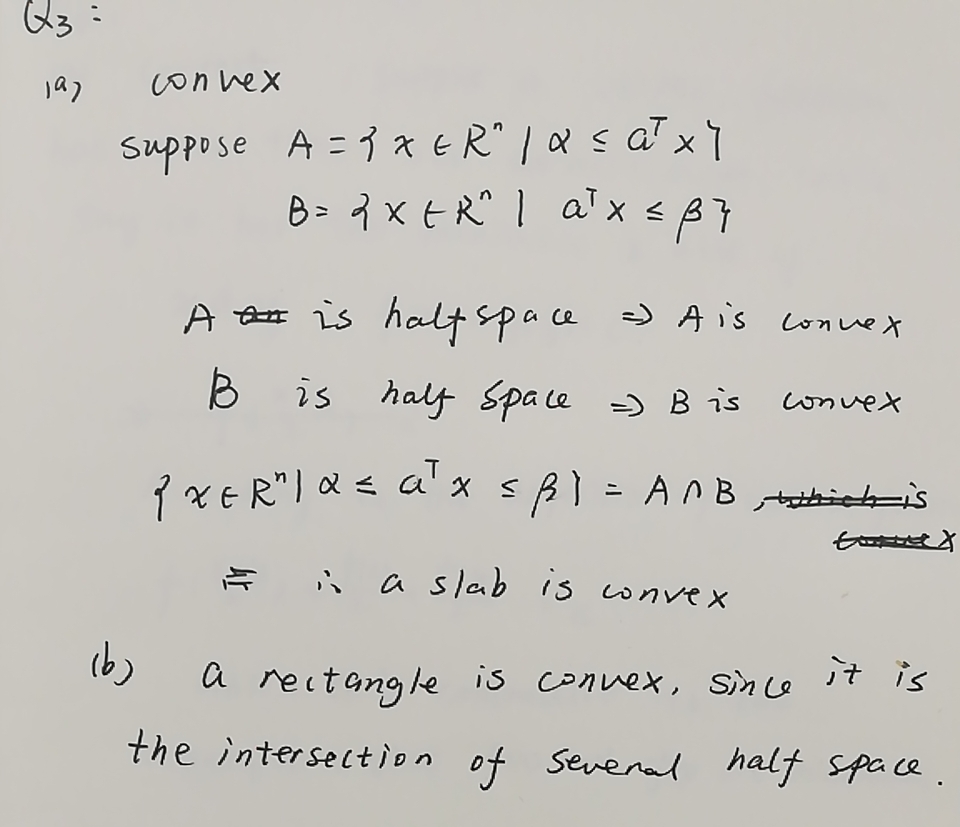 Q3:
(a) convex
suppose A = { x ∈ Rⁿ | α ≤ aᵀx }
B = { x ∈ Rⁿ | aᵀx ≤ β }
A is half space ⇒ A is convex
B is half space ⇒ B is convex
{ x ∈ Rⁿ | α ≤ aᵀx ≤ β } = A ∩ B , which is
convex
∴ a slab is convex
(b) a rectangle is convex, since it is
the intersection of several half space.